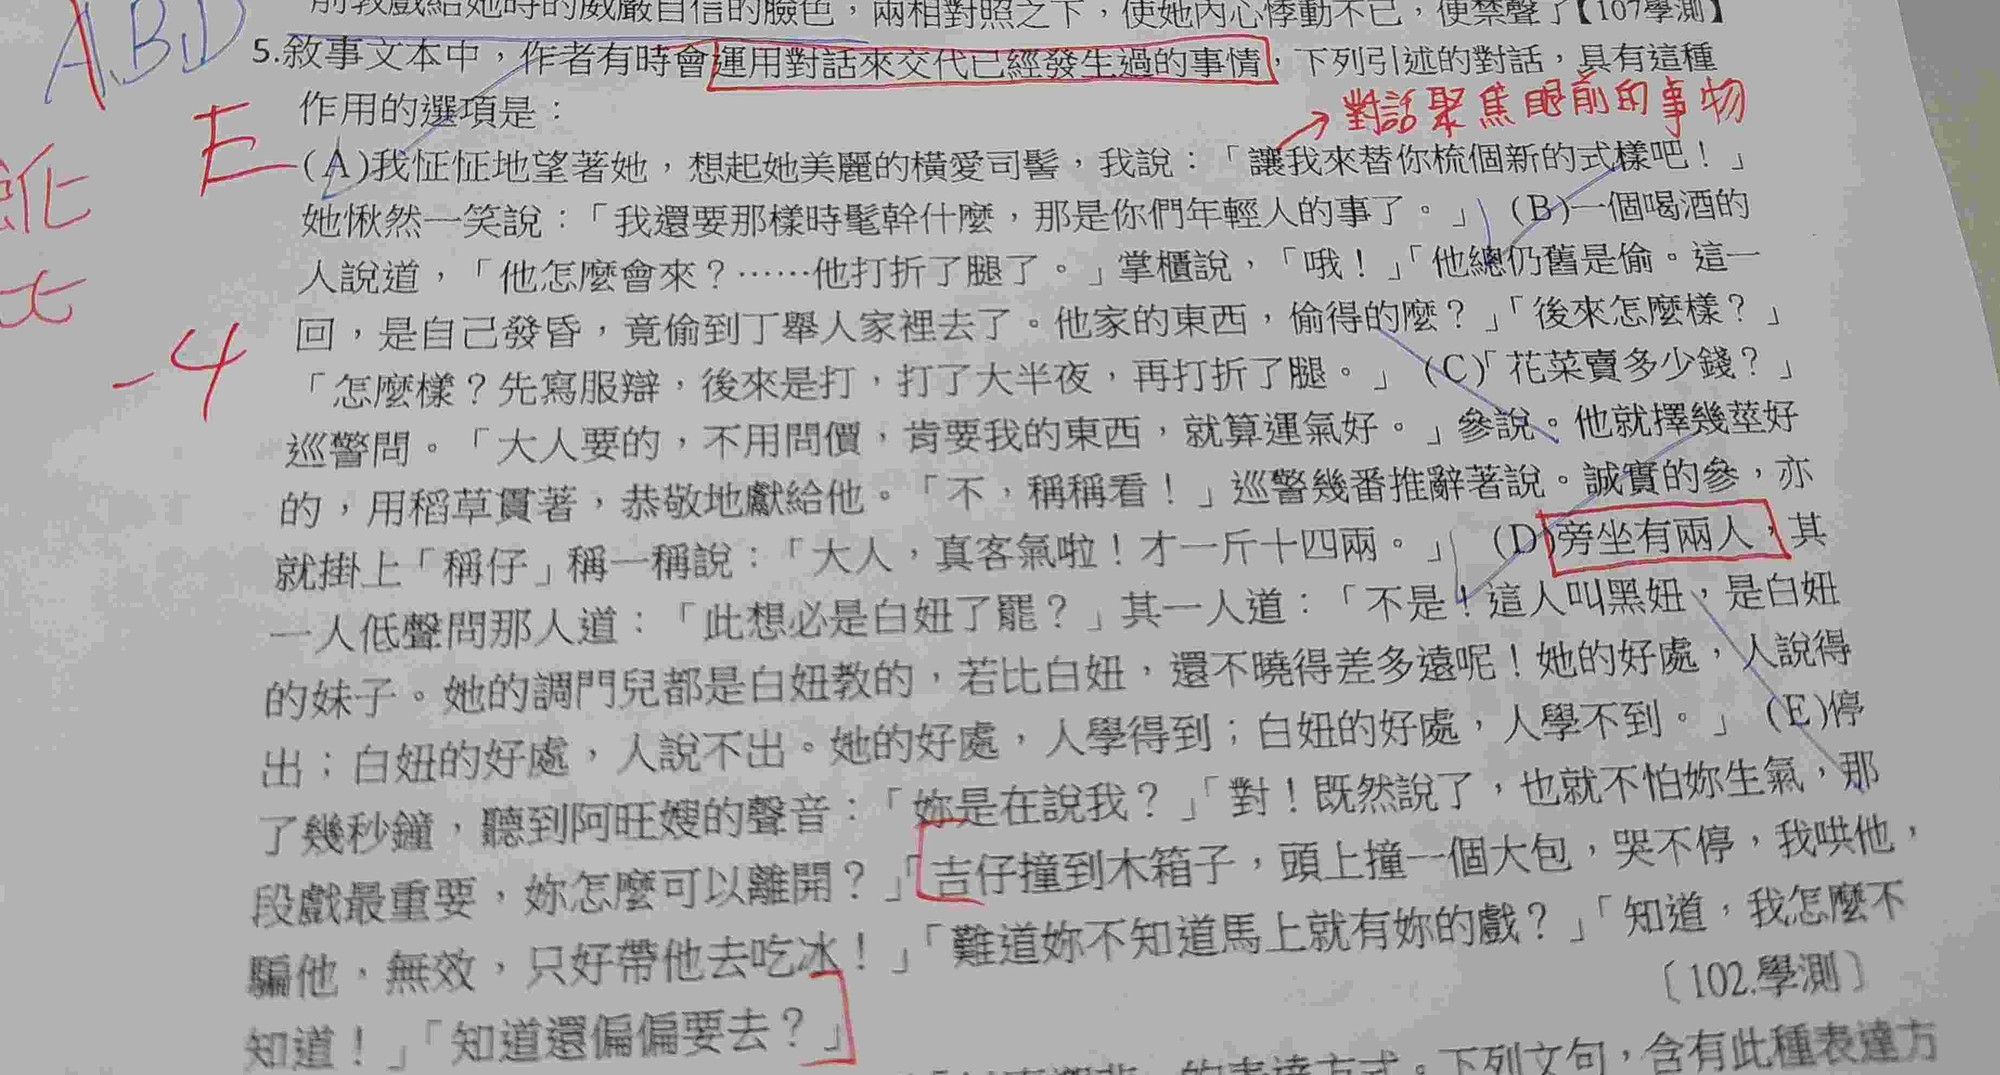 前教戲給她時的威嚴自信的臉色，兩相對照之下，使她內心悸動不已，便禁聲了【107學測】
ABD
5.敘事文本中，作者有時會運用對話來交代已經發生過的事情，下列引述的對話，具有這種
作用的選項是：
→對話聚焦眼前的事物
E
(A)我怔怔地望著她，想起她美麗的橫愛司髻，我說：「讓我來替你梳個新的式樣吧！」
她愀然一笑說：「我還要那樣時髦幹什麼，那是你們年輕人的事了。」 (B)一個喝酒的
人說道，「他怎麼會來？……他打折了腿了。」掌櫃說，「哦！」「他總仍舊是偷。這一
回，是自己發昏，竟偷到丁舉人家裡去了。他家的東西，偷得的麼？」「後來怎麼樣？」
-4
「怎麼樣？先寫服辯，後來是打，打了大半夜，再打折了腿。」 (C)「花菜賣多少錢？」
巡警問。「大人要的，不用問價，肯要我的東西，就算運氣好。」參說。他就擇幾莖好
的，用稻草貫著，恭敬地獻給他。「不，稱稱看！」巡警幾番推辭著說。誠實的參，亦
就掛上「稱仔」稱一稱說：「大人，真客氣啦！才一斤十四兩。」 (D)旁坐有兩人，其
一人低聲問那人道：「此想必是白妞了罷？」其一人道：「不是！這人叫黑妞，是白妞
的妹子。她的調門兒都是白妞教的，若比白妞，還不曉得差多遠呢！她的好處，人說得
出；白妞的好處，人說不出。她的好處，人學得到；白妞的好處，人學不到。」 (E)停
了幾秒鐘，聽到阿旺嫂的聲音：「妳是在說我？」「對！既然說了，也就不怕妳生氣，那
段戲最重要，妳怎麼可以離開？」「吉仔撞到木箱子，頭上撞一個大包，哭不停，我哄他，
騙他，無效，只好帶他去吃冰！」「難道妳不知道馬上就有妳的戲？」「知道，我怎麼不
知道！」「知道還偏偏要去？」
〔102.學測〕
的表達方式。下列文句，含有此種表達方